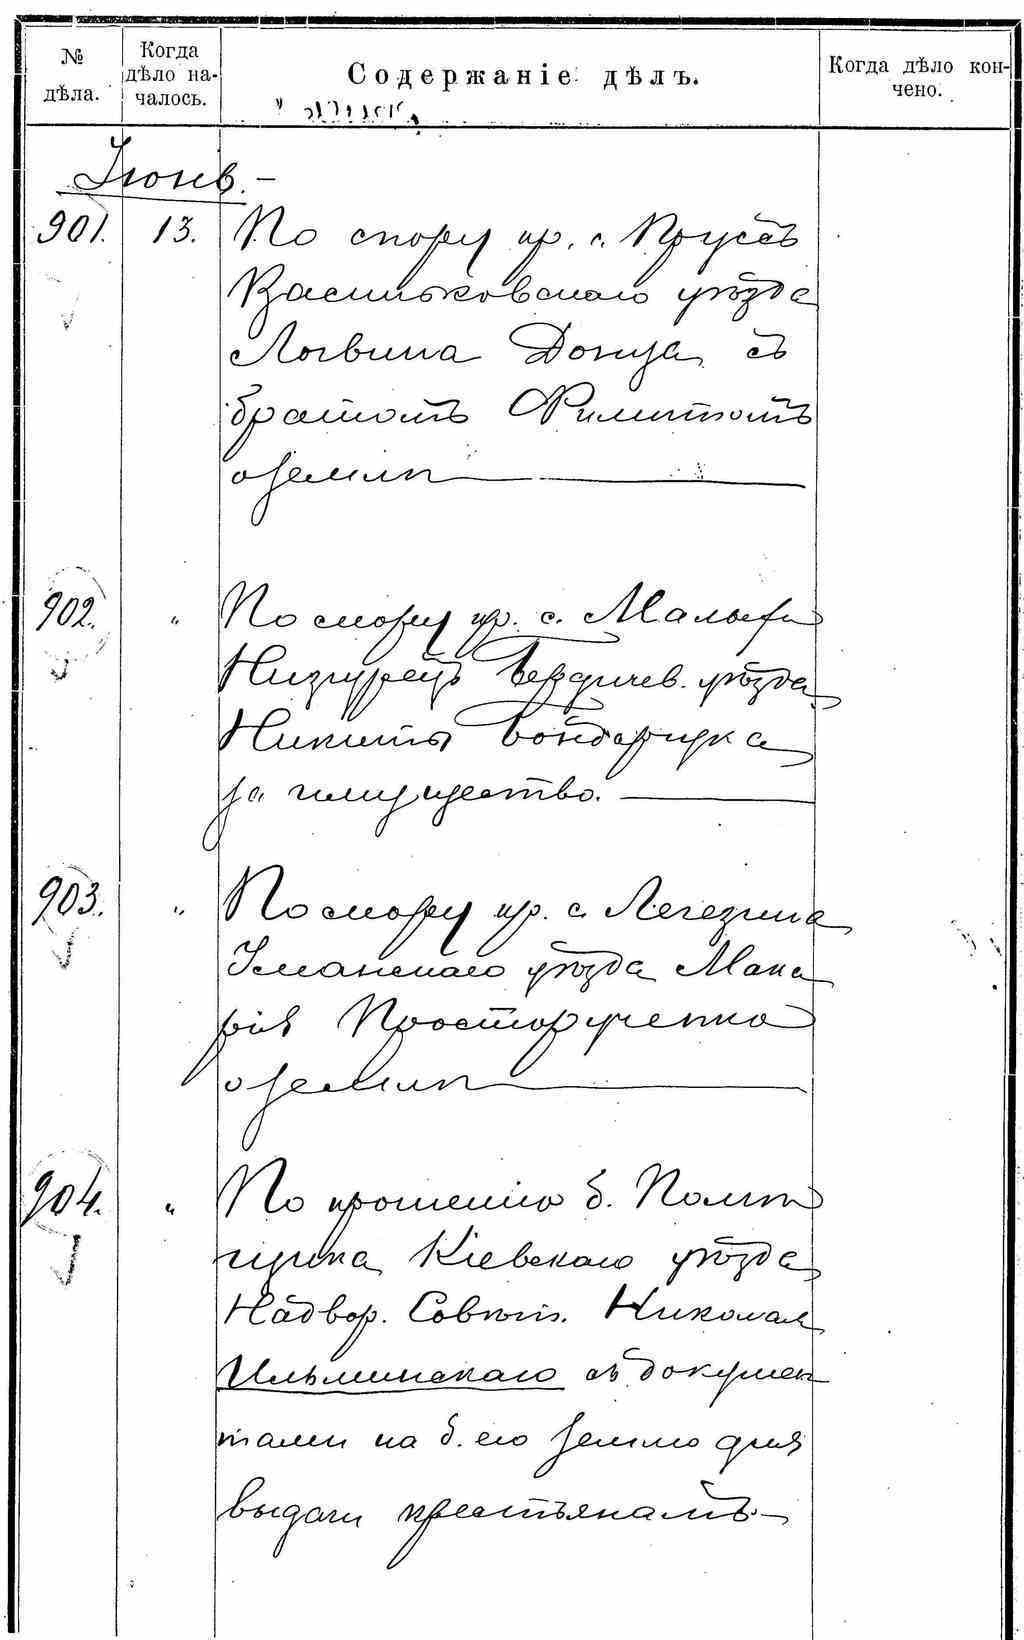 № дѣла.
Когда дѣло началось.
Содержаніе дѣлъ.
Когда дѣло кончено.
Іюнь.–
901. 13. По спору кр. с. Прусъ
Васильковскаго уѣзда
Логвина Донца съ
братомъ Филиппомъ
о землѣ
902. " По спору кр. с. Малыхъ
Низгурецъ Бердичев. уѣзда
Никиты Бондарука
за имущество.
903. " По спору кр. с. Легезина
Уманскаго уѣзда Мака
рія Просторученко
о землѣ
904. " По прошенію б. Помѣ
щика Кіевскаго уѣзда
Надвор. Совѣт. Николая
Ильминскаго съ докумен
тами на б. его землю для
выдачи крестьянамъ.–